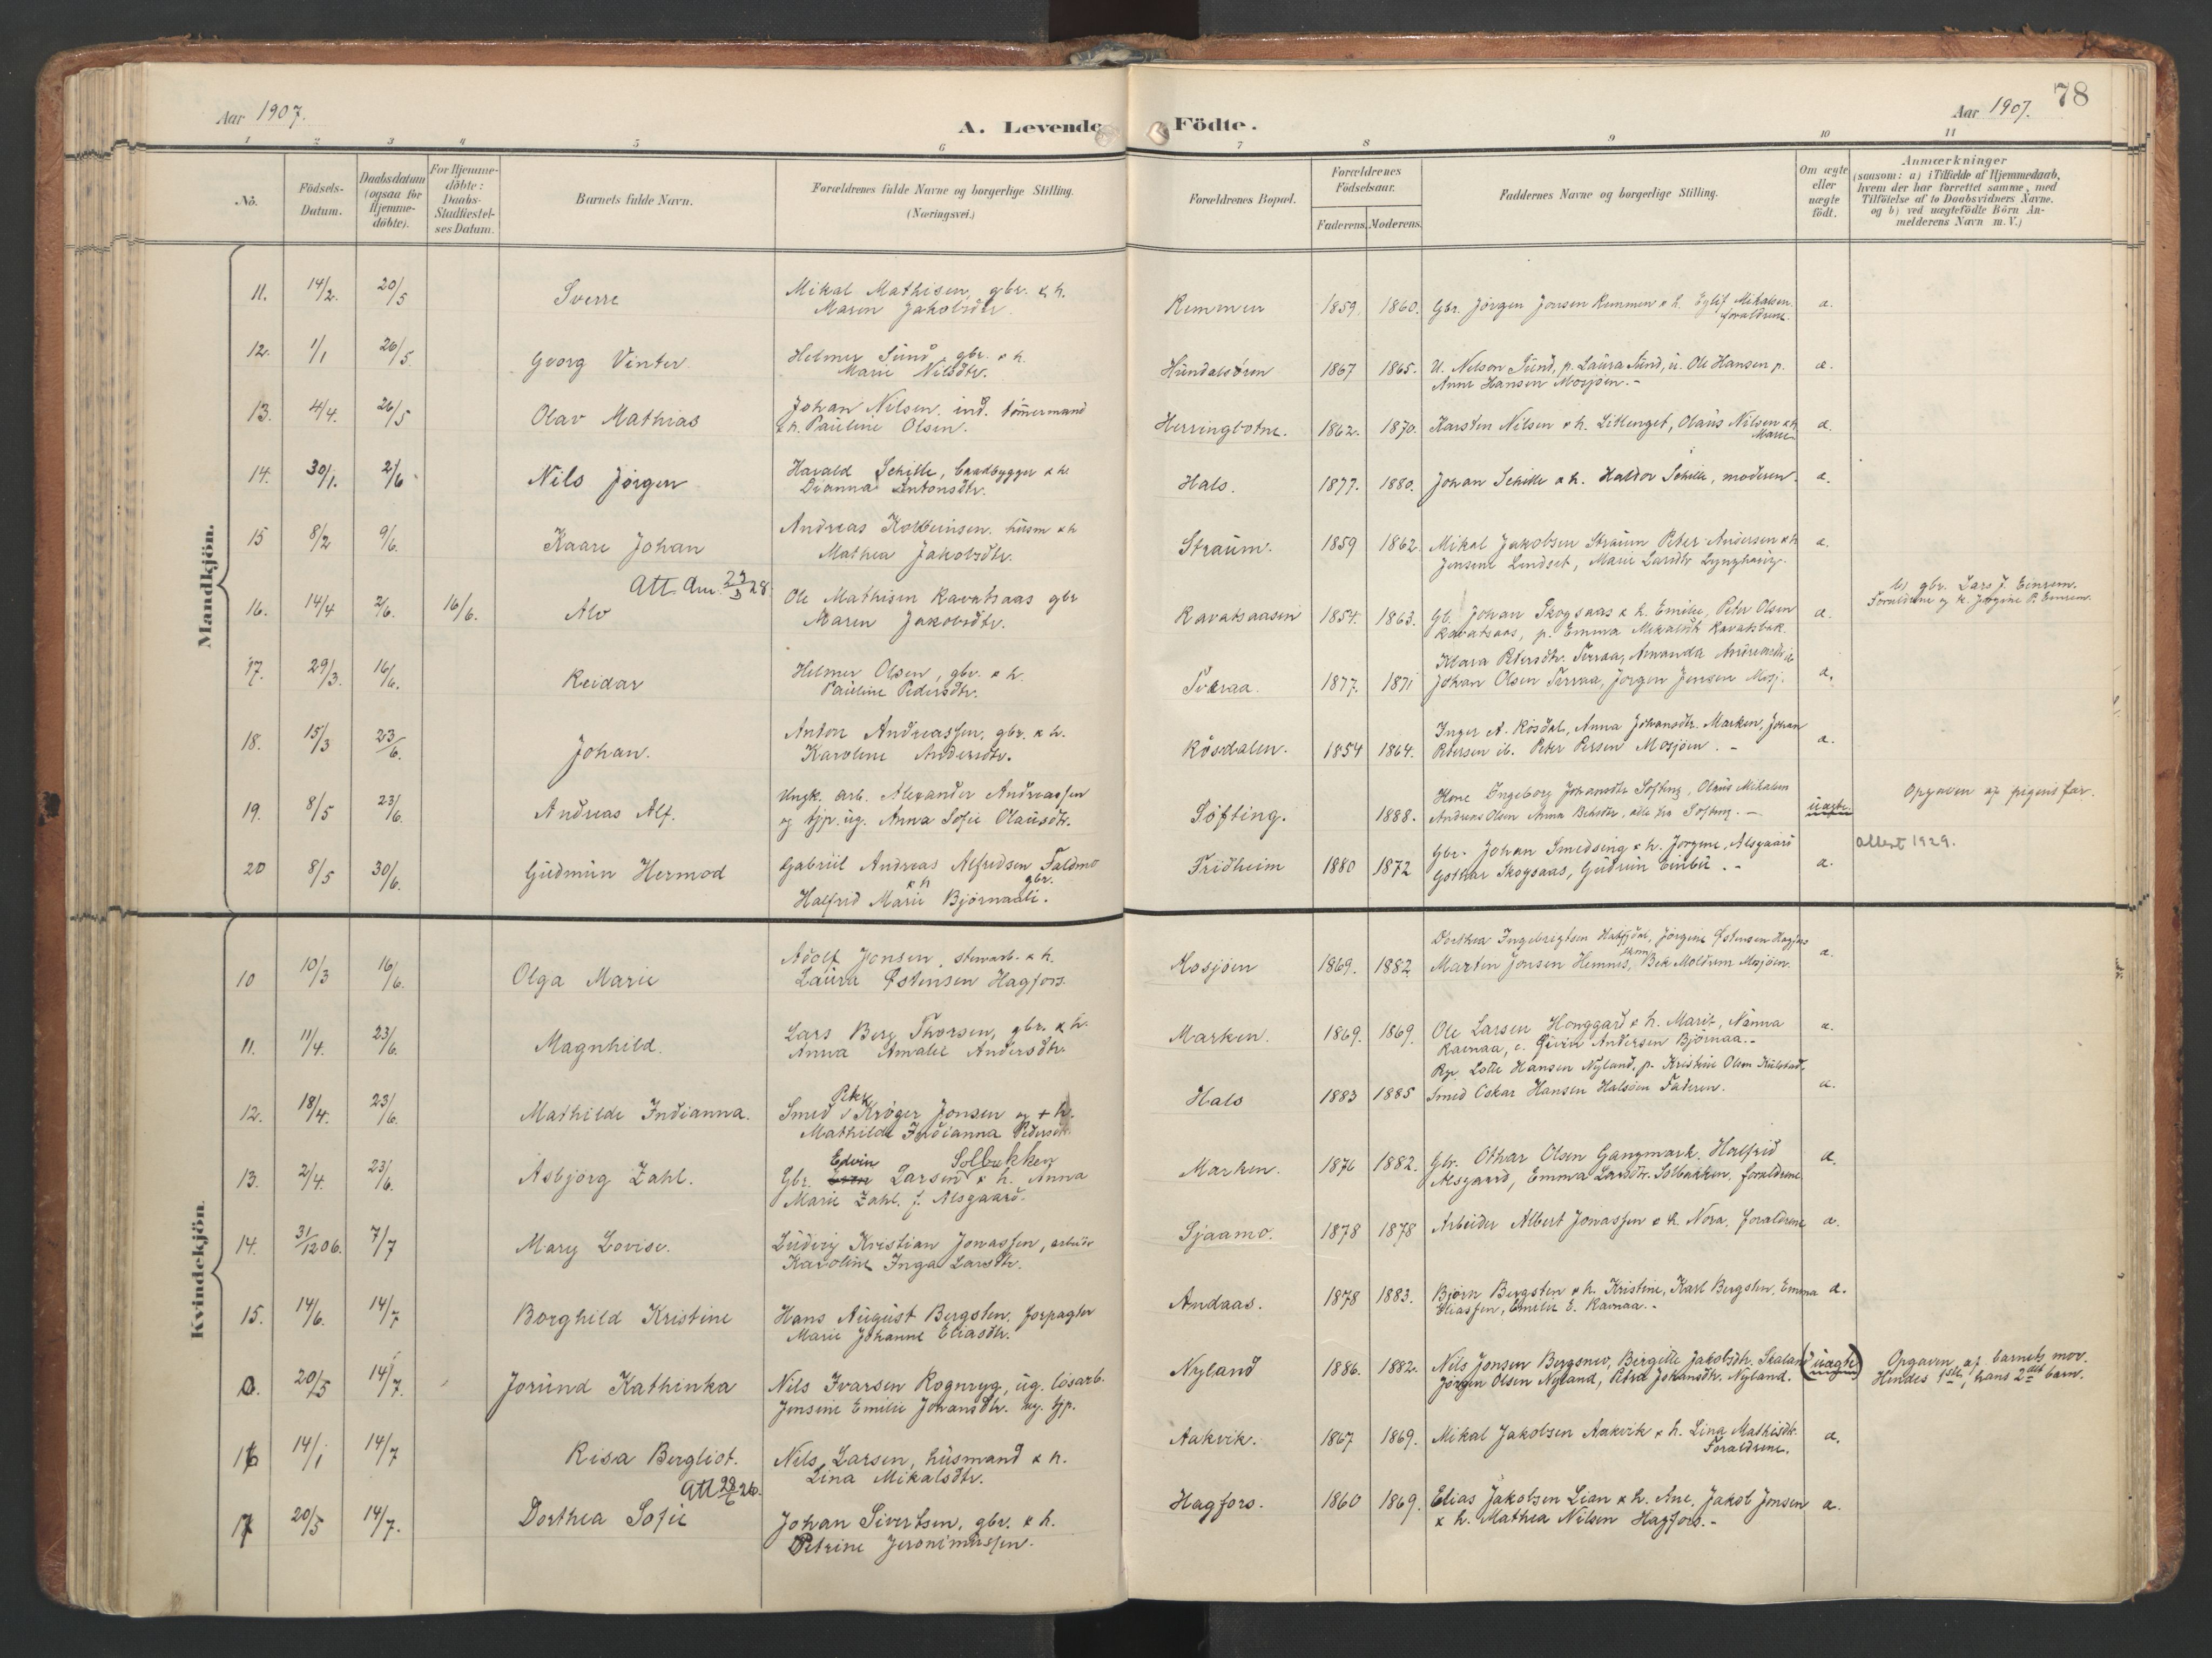 Aar 1907.
A. Levende Födte.
Aar 1907.
78
1 2 3 4 5 6 7 8 9 10 11
No.
Födsels-Datum.
Daabsdatum (ogsaa for Hjemme-döbte).
For Hjemme-döbte: Daabs-Stadfæstel-ses Datum.
Barnets fulde Navn.
Forældrenes fulde Navne og borgerlige Stilling. (Næringsvei.)
Forældrenes Bopæl.
Forældrenes Födselsaar.
Faderens. Moderens.
Faddernes Navne og borgerlige Stilling.
Om ægte eller uægte født.
Anmærkninger
(saasom: a) i Tilfælde af Hjemmedaab,
hvem der har forrettet samme, med
Tilføielse af to Daabsvidners Navne.
og b) ved uægtefødte Börn An-
melderens Navn m. V.)
Mandkjön.
11. 14/2. 20/5 Sverre Mikal Mathisen, gbr. & h. Remmen 1859 1860. Gbr. Jörgen Jonsen Remmen & h. Eylif Mikalsen. æ.
Maren Jakobsdtr. forældrene.
12. 1/1 26/5. Georg Vinter. Helmer Sund, gbr. & h. Hundalsören 1867 1865. U. Nelson Sund, p. Laura Sund, u. Ole Hansen p. æ.
Marie Nilsdtr. Anne Hansen Mosjöen. -
13. 4/4. 26/5 Olav Mathias Johan Nilsen. ind. tömmermand Herringbotne. 1862. 1870. Karsten Nilsen & h. Litlenget, Olaus Nilsen & h. æ.
& h. Pauline Olsen. Marie
14. 30/1. 2/6. Nils Jörgen Harald Schille, baadbygger & h. Hals. 1877. 1880. Johan Schille & h. Haldor Schille, moderen. æ.
Dianna Antonsdtr.
15 8/2 9/6. Kaare Johan Andreas Kolbeinsen. husm & h Straum. 1859 1862. Mikal Jakobsen Straum Peter Andersen & h æ.
Mathea Jakobsdtr. Jensine Lindset, Marie Larsdtr
Att. Am. 28
16. 14/4 2/6. 16/6. Alv Ole Mathisen Kavatsaas gbr Kavatsaasen 1854. 1863. Gb. Johan Skogsaas & h. Emilie, Peter Olsen æ. gbr. Lars J. Einrem.
Maren Jakobsdtr. Kavatsaas, p. Emma Mikalsdtr Forældrene og h. Jörgine P. Einrem.
17. 29/3. 16/6. Reidar Helmer Olsen, gbr. & h. Tveraa. 1877. 1871 Klara Petersdtr. Tverraa, Amanda æ.
Pauline Pedersdtr. Johan Olsen Tverraa, Jörgen Jensen Mosj.
18. 15/3 23/6. Johan. Anton Andreassen, gbr. & h. Rösdalen. 1854 1864. Inger A. Rösdal, Anna Johansdtr. Marken, Johan æ.
Karoline Andersdtr. Petersen ib. Peter Persen Mosjöen. -
19. 8/5 23/6. Andreas Alf. Ungk. arb. Alexander Andreassen Söfting. 1888. Kone Ingeborg Johansdtr Söfting, Olaus Mikalsen uægte. Opgaven af pigens far.
og tjp. ug. Anna Sofie Olausdtr. Andreas Olsen Anna, alle fra Söfting. -
20 8/5 30/6. Gudmun Hermod Gabriel Andreas Alfredsen Faldmo gbr. & h Fridheim 1880 1872 Gbr. Johan Smedseng & h. Jörgine, Alsgaard æ. attest 1929.
Halfrid Marie Björnaali. Gothar Skogsaas, Gudrun Einbu. -
Kvindekjön.
10 10/3 16/6. Olga Marie Adolf Jonsen, stenarb. & h. Mosjöen 1869. 1882 Dorthea Ingebrigtsen Hatfjdal, Jörgine Östensen Hagfors æ.
Laura Östensen Hagfors. Martin Jonsen Hemnes, Bek Moldrem Mosjöen.
11. 11/4. 23/6. Magnhild. Lars Berg Thorsen, gbr. & h. Marken. 1869. 1869. Ole Larsen Honggard & h. Marit, Nanna æ.
Anna Amalie Andersdtr. Ravnaa, e. Andersen Björnaa. -
12. 18/4. 23/6. Mathilde Indianna. Smed Peter Kröger Jonsen og + h. Hals 1883 1885 Rp. Lotte Hansen Nyland, p. Kristine Olsen Kulstad. æ.
Mathilde Indianna Pedersdtr. Smed Oskar Hansen Halsöen Faderen.
13. 2/4. 23/6. Asbjörg Zahl. Gbr. Edvin Larsen Solbakken & h. Anna Marken. 1876 1882. Gbr. Othar Olsen Gangmark. Halfrid æ.
Marie Zahl. f. Alsgaard. Alsgaard, Emma Larsdtr. Solbakken, forældrene
14. 31/12 06. 7/7 Mary Lovise. Ludvig Kristian Jonassen, arbeider Sjaamo. 1878 1878 Arbeider Albert Jonassen & h. Nora. forældrene æ.
Karoline Inga Larsdtr.
15. 14/6. 14/7 Borghild Kristine Hans August Bergsten, forpagter Andaas. 1878 1883. Björn Bergsten & h. Kristine, Karl Bergsten, Emma æ.
Marie Johanne Eliasdtr. Eliassen, Emilie E. Ravnaa. -
0. 20/5 14/7. Jorund Kathinka Nils Ivarsen Rognryg, ug. lösarb. Nyland 1886. 1882. Nils Jonsen Bergsnev, Birgitte Jakobsdtr. Skaland (uægte) Opgaven af barnets mor.
Jensine Emilie Johansdtr. ug. tjp. Jörgen Olsen Nyland, Petra Johansdtr. Nyland. Hendes 1ste, hans 2det barn.
16 14/1 14/7 Risa Bergliot. Nils Larsen, husmand & h. Aakvik. 1867 1869. Mikal Jakobsen Aakvik & h. Lina Mathisdtr. æ.
Lina Mikalsdtr. Forældrene.
Att 28/6 26.
17 20/5 14/7. Dorthea Sofie Johan Sivertsen, gbr. & h. Hagfors. 1860 1869. Elias Jakobsen Lian & h. Ane, Jakob Jonsen æ.
Petrine Jeronimussen. & h. Mathea Nilsen Hagfors. -